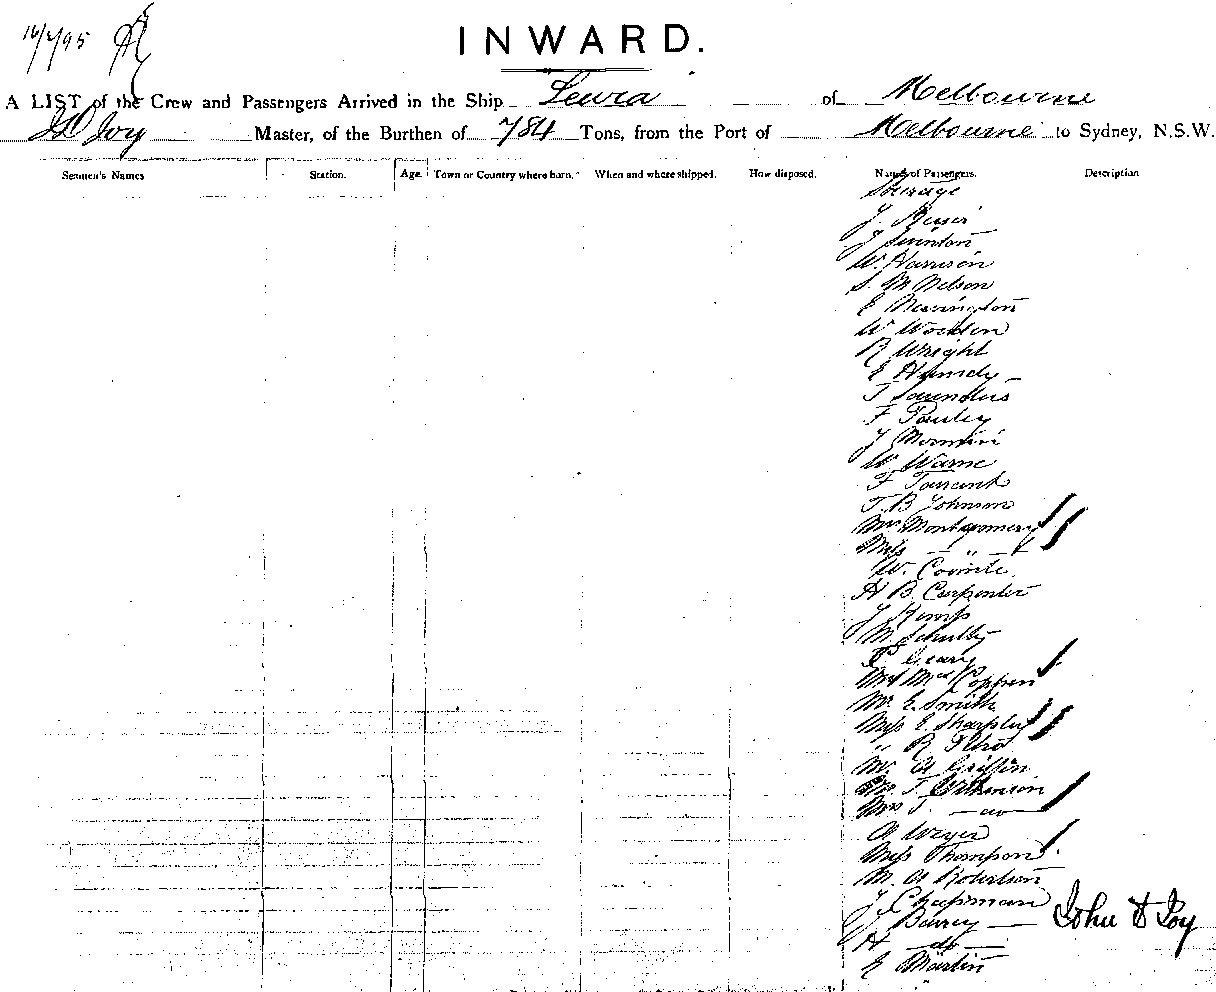 16/4/95
INWARD.
A LIST of the Crew and Passengers Arrived in the Ship Leura of Melbourne
J D Joy Master, of the Burthen of 784 Tons, from the Port of Melbourne to Sydney, N.S.W.
Seamen's Names Station. Age. Town or Country where born. When and where shipped. How disposed. Names of Passengers. Description
Steerage
J.
J Swinton
W. Harrison
S. M Nelson
E Newington
W Worden
R Wright
E
T Saunders
F Pauley
J
W Warne
F Tarrant
T. B Johnson
Mrs Montgomery
Miss — " —
W.
H B. Carpenter
J Kemp
M. Schultz
P Geary
Mr & Mrs Coppen
Mr. E. Smith
Miss E. Sharpley
" R
Mr A Griffin
Mr. T. Wilkinson
Mrs T. — do —
A Weyer
Miss Thompson
M. A Robertson
J Chapman
J. Barry — John D Joy
H — do —
E Martin